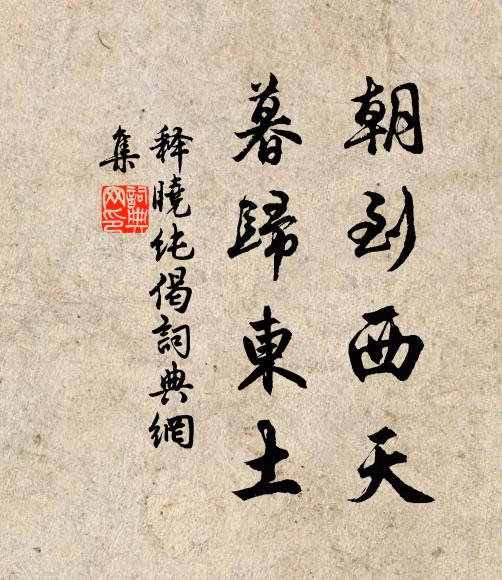 朝到西天
暮歸東土
释曉純偈詞典網
集
詞典網印